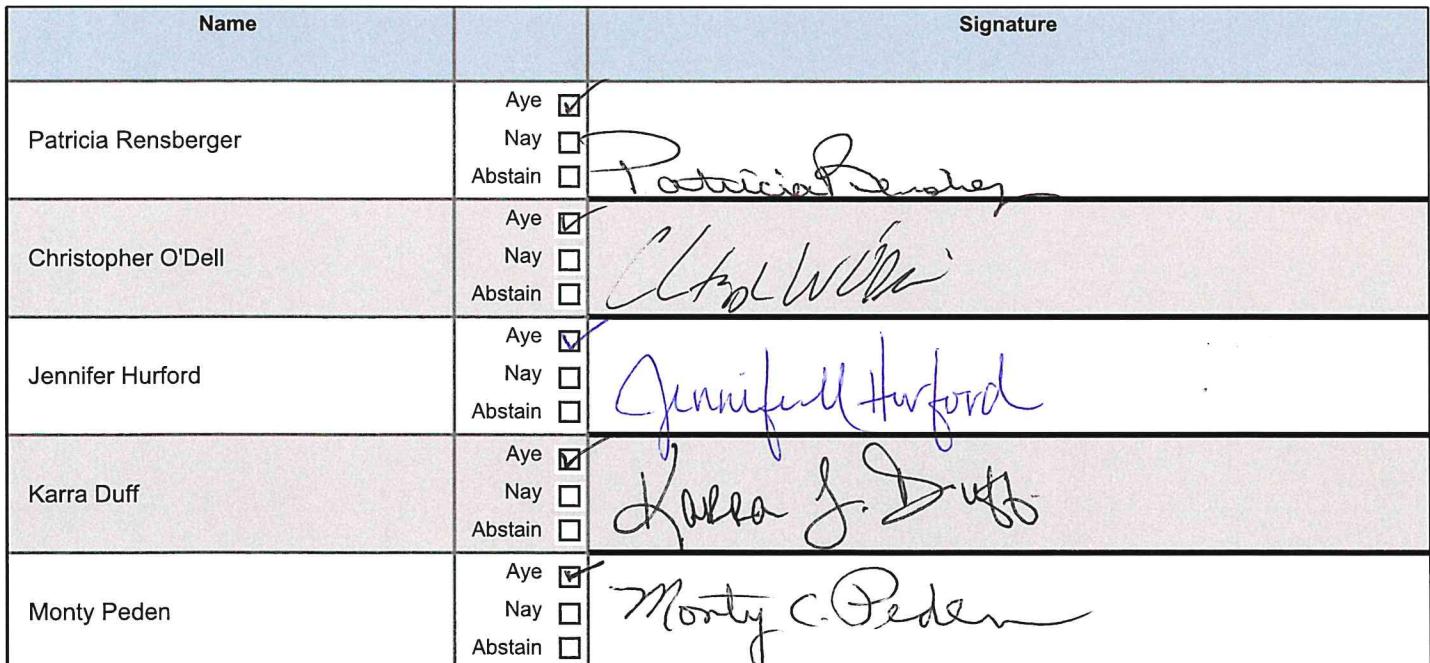 Name Signature
Aye
Patricia Rensberger Nay
Abstain
Patricia
Aye
Christopher O'Dell Nay
Abstain
Aye
Jennifer Hurford Nay
Abstain
Jennifer M Hurford
Aye
Karra Duff Nay
Abstain
Karra J. Duff
Aye
Monty Peden Nay
Abstain
Monty C. Peden